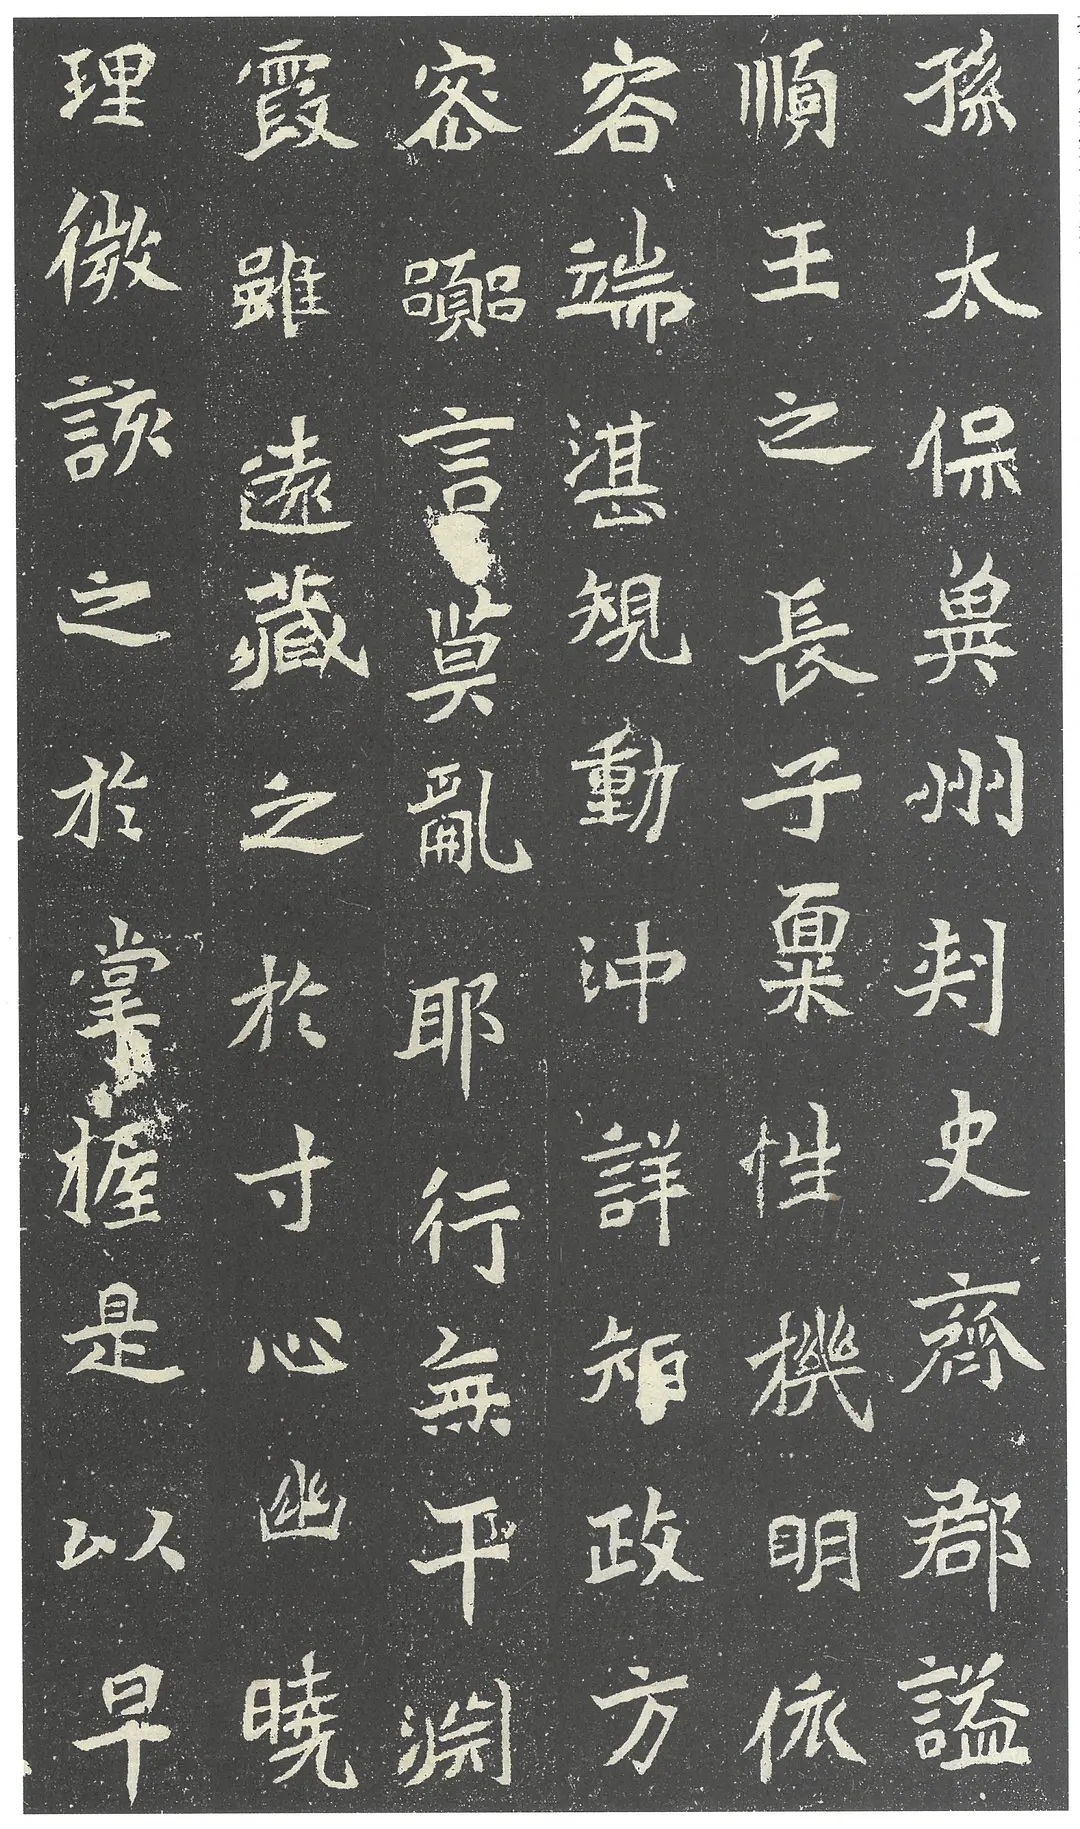 孫太保兾州刾史齊郡謚
順王之長子稟性機明依
容端湛䂓動沖詳政方
密嚻言莫亂耶行無干淵
霞雖遠藏之於寸心幽曉
理微該之於掌握是以早